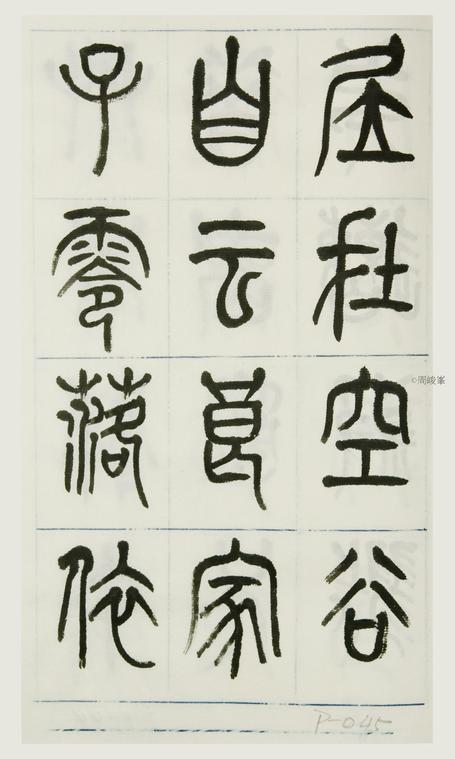 居在空谷
自云良家
子零落依
P-045
©周峻峯